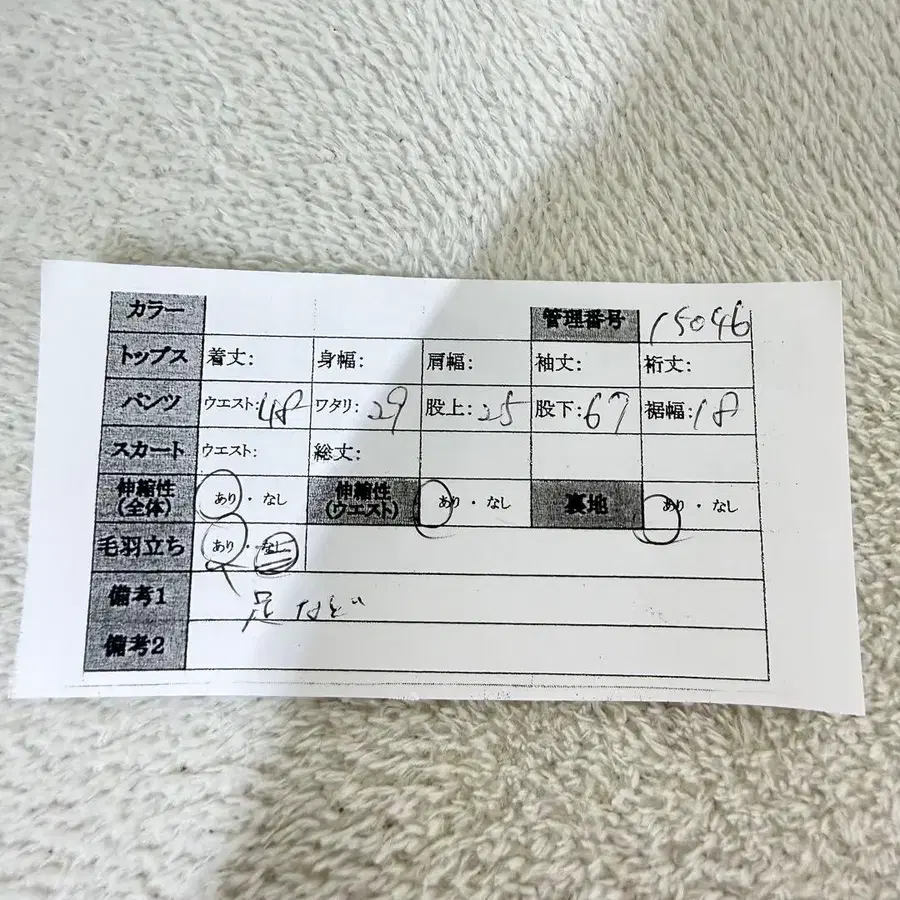 カラー 管理番号 15046
トップス 着丈: 身幅: 肩幅: 袖丈: 裄丈:
パンツ ウエスト:48 ワタリ:29 股上:25 股下:67 裾幅:18
スカート ウエスト: 総丈:
伸縮性(全体) あり・なし 伸縮性(ウエスト) あり・なし 裏地 あり・なし
毛羽立ち あり・なし
備考1 足など
備考2